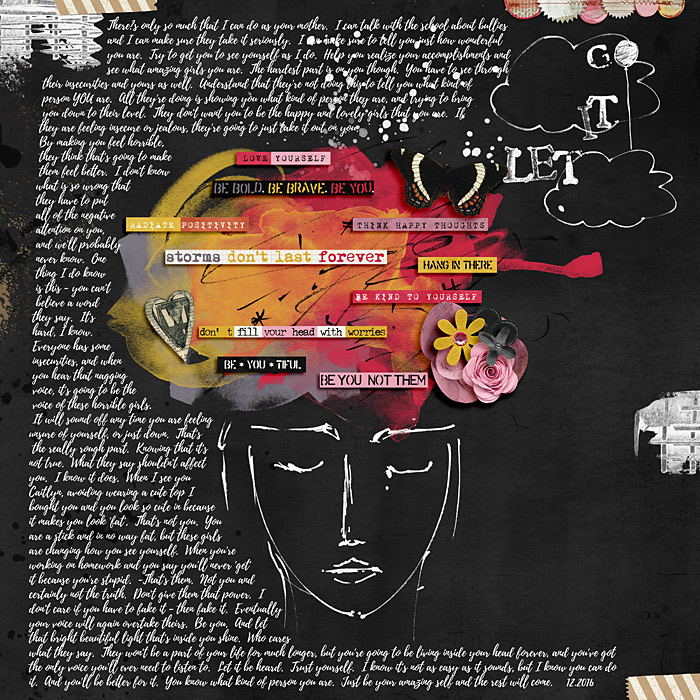 There's only so much that I can do as your mother. I can talk with the school about bullies
and I can make sure they take it seriously. I can make sure to tell you just how wonderful
you are. Try to get you to see yourself as I do. Help you realize your accomplishments and
see what amazing girls you are. The hardest part is on you though. You have to see through
their insecurities and yours as well. Understand that they're not doing this to tell you what kind of
person YOU are. All they're doing is showing you what kind of person they are, and trying to bring
you down to their level. They don't want you to be the happy and lovely girls that you are. If
they are feeling insecure or jealous, they're going to just take it out on you.
By making you feel horrible,
they think that's going to make
them feel better. I don't know
what is so wrong that
they have to put
all of the negative
attention on you,
and we'll probably
never know. One
thing I do know
is this - you can't
believe a word
they say. It's
hard, I know.
Everyone has some
insecurities, and when
you hear that nagging
voice, it's going to be the
voice of these horrible girls.
It will sound off any time you are feeling
unsure of yourself, or just down. That's
the really rough part. Knowing that it's
not true. What they say shouldn't affect
you. I know it does. When I see you
Caitlyn, avoiding wearing a cute top I
bought you and you look so cute in because
it makes you look 'fat'. That's not you. You
are a stick and in no way fat, but these girls
are changing how you see yourself. When you're
working on homework and you say you'll never 'get
it because you're stupid. -That's them. Not you and
certainly not the truth. Don't give them that power. I
don't care if you have to fake it - then fake it. Eventually
your voice will again overtake theirs. Be you. And let
that bright beautiful light that's inside you shine. Who cares
what they say. They won't be a part of your life for much longer, but you're going to be living inside your head forever, and you've got
the only voice you'll ever need to listen to. Let it be heard. Trust yourself. I know it's not as easy as it sounds, but I know you can do
it. And you'll be better for it. You know what kind of person you are. Just be your amazing self and the rest will come. 12.2016
GO
IT
LET
LOVE YOURSELF
BE BOLD. BE BRAVE. BE YOU.
RADIATE POSITIVITY
THINK HAPPY THOUGHTS
storms don't last forever
HANG IN THERE
BE KIND TO YOURSELF
don't fill your head with worries
BE * YOU * TIFUL
BE YOU NOT THEM